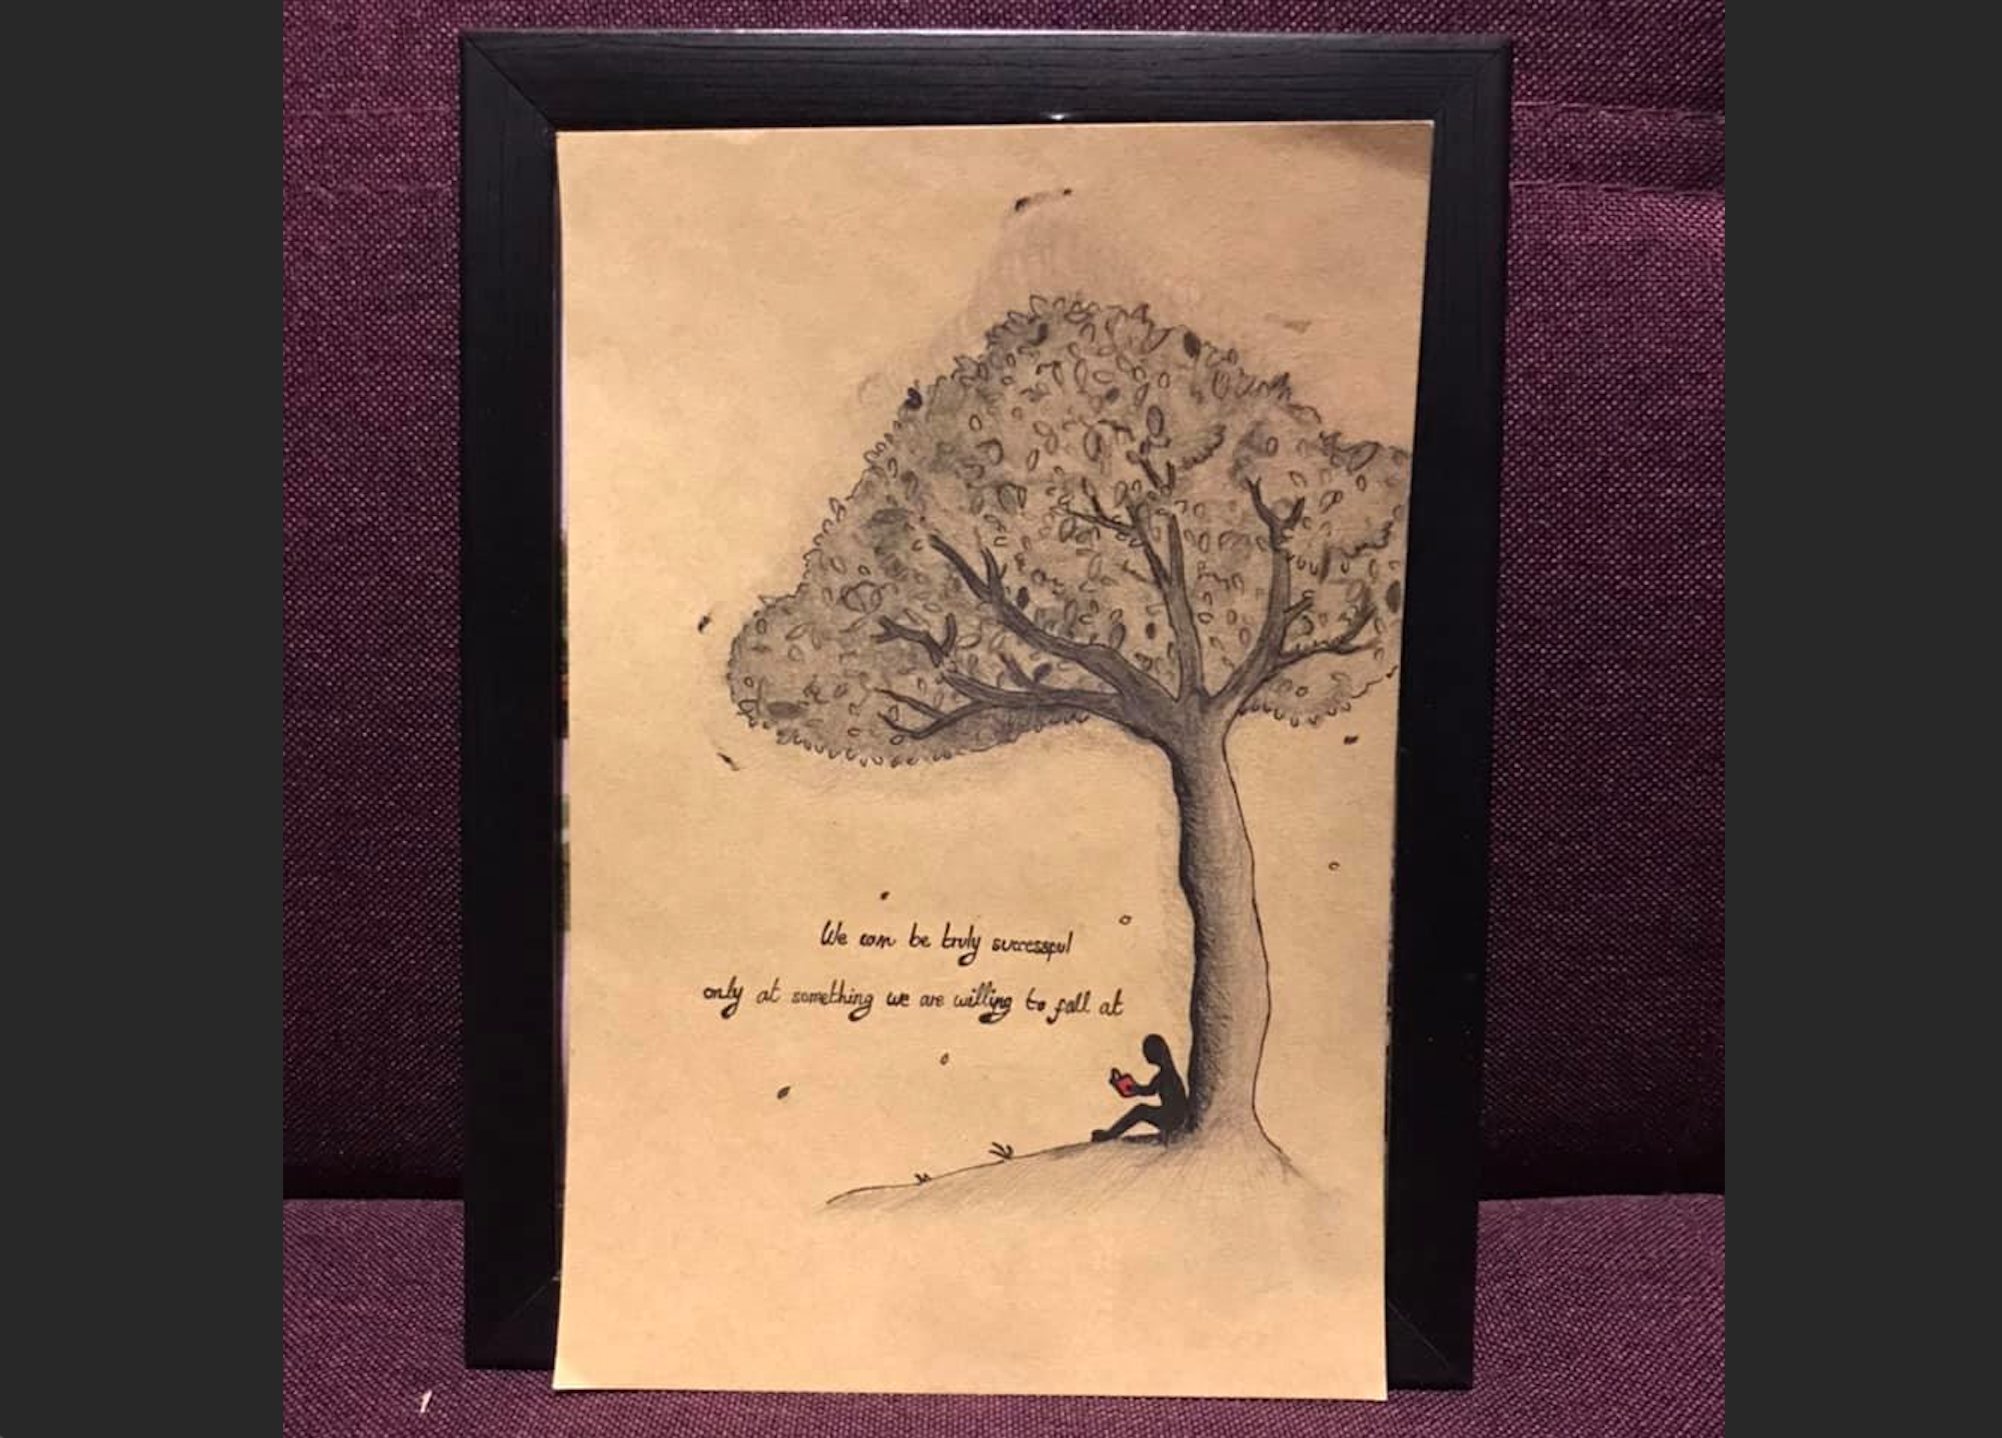 We can be truly successful
only at something we are willing to fall at